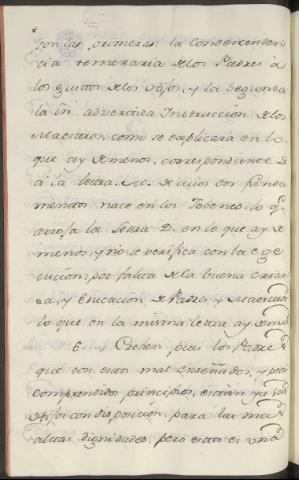 son las primeras: la Condescenden
cia temeraria de los Padres à
los gustos de los Hijos, y la Segunda
la in advertida Instruccion de los
Maestros: como se explicará en lo
que ay de menos, correspondiente
à la letra. C. de cuios dos funda
mentos nace en los Jobenes, lo q.e
arroja la Letra D. en lo que ay de
menos, y no se verifica con la ege
cucion, por falta de la buena crian
za, y Educacion de Padres, y Maestros
lo que en la misma letra ay de mas
6.... Crehen, pues los Padres
que con estos mal enseñados, y peor
comprendidos principios, están ya sus
Hijos con disposicion, para las mas
altas dignidades, pero esta es una